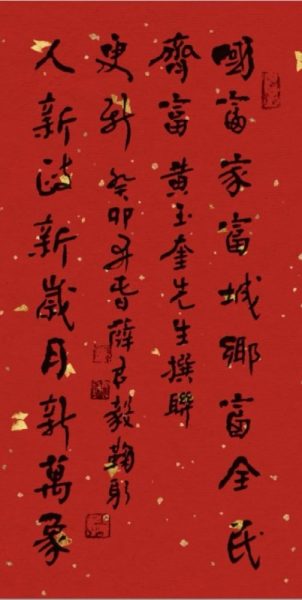 國富家富城鄉富全民
齊富 黄玉奎先生撰聯
人新政新歲月新萬象
更新 癸卯春薛君毅鞠躬